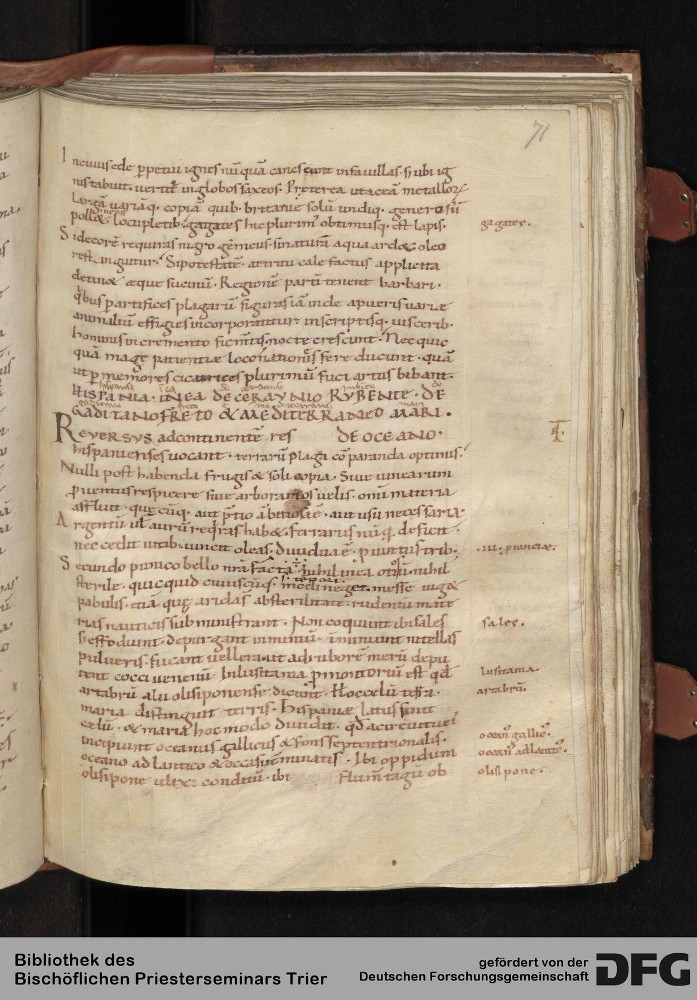 71
In cuius ede ꝑpetui ignes nū quā canescunt in fauillas. s; ubi ig
nis tabuit. uertit̄ in globos saxeos. Preterea ut aceā metallorꝫ
largā uariāq. copiā quib. britanie solū undiq. generosū
pollet. locupletib. gagates hic plurim' obtimusq. est lapis.
gagates.
Si decorē requiras nigro gēmeus. si naturā aqua ardet. oleo
restinguitur. Si potestatē. attritu cale factus applicita
detinet æque sucinū. Regionē partī tenent barbari.
qͥbus ꝑ artifices plagarū figuras iā inde a pueris uariæ
animaliū effigies incorporantur. inscriptisq. uisceribꝰ
hominis incremento pigmti nocte crescunt. Nec quic
quā mage patientiæ loco nationes fere ducunt. quā
ut ꝑ memores cicatrices plurimū fuci artus bibant.
HISPANIA. INEA DE CERAYNIO RVBENTE. DE
GADITANO FRETO & MEDITERRANEO MARI.
REVERSVS ad continentē res DE OCEANO.
hispanienses uocant. terrarū plaga cōparanda optimis.
Nulli post habenda frugis & soli copia. Siue uinearum
ꝓuentus respicere siue arborarios uelis. omī materia
affluit. que cūq. aut ꝑtio ābitiosa ē. aut usū necessaria.
Argentū uł aurū reqͥras habet. ferrariis nū qͣ deficit.
nec cedit uitib. uincit oleas. Diuidua ē. ꝓuintiis trib.
.iii. ꝓuinciæ.
Secundo punico bello nr̄a facta. nihil in ea otiosū. nihil
sterile. quicquid cuiuscūq. modi neget messe uiget
pabulis. etiā quę arida sī ab sterilitate. rudentū mate
rias nauticis subministrant. Non coquunt ibi sales
sales.
s; effodiunt. depurgant in minimū. īminunt nitellas
pulueris. fucant uellera. ut ad ruborē merū depu
tent cocci uenenū. In lusitania ꝓmontoriū est qd̄
lusitania.
artabrū alii olisiponense dicunt. Hoc celū terras
artabrū.
maria distinguit terris. hispaniæ latus finit
cælū. & maria hoc modo diuidit. qd̄ a circuitu eiꝰ
incipiunt oceanus gallicus & fons septentrionalis.
oceanꝰ gallicꝰ.
oceano adlantico & occasu tminatis. Ibi oppidum
oceanꝰ adlantic̄ꝰ.
olisipone ulixi conditū. ibi Flum̄ tagū ob
olisipone.
Bibliothek des
Bischöflichen Priesterseminars Trier
gefördert von der
Deutschen Forschungsgemeinschaft
DFG